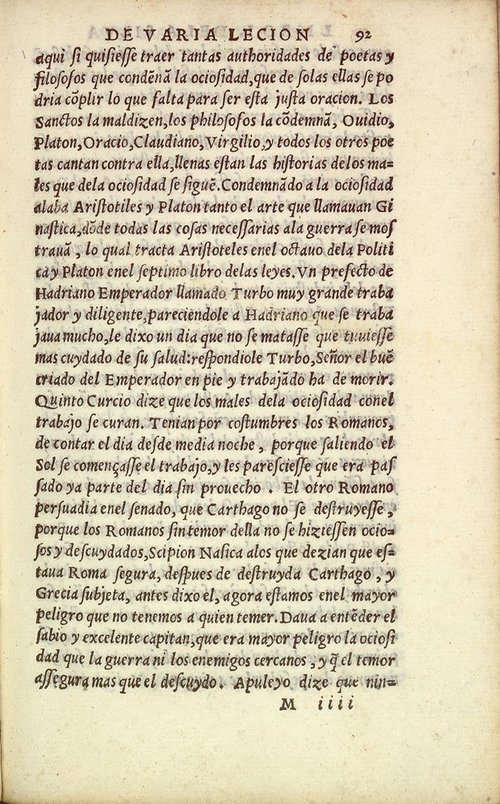 DE VARIA LECION 92
aqui si quisiesse traer tantas authoridades de poetas y
filosofos que condēnā la ociosidad, que de solas ellas se po
dria cōplir lo que falta para ser esta justa oracion. Los
Sanctos la maldizen, los philosofos la cōdemnā, Ouidio,
Platon, Oracio, Claudiano, Virgilio, y todos los otros poe
tas cantan contra ella, llenas estan las historias delos ma-
les que dela ociosidad se siguē. Condemnādo a la ociosidad
alaba Aristotiles y Platon tanto el arte que llamauan Gi
nastica, dōde todas las cosas necessarias ala guerra se mos
trauā, lo qual tracta Aristoteles enel octauo dela Politi
ca y Platon enel septimo libro delas leyes. Vn prefecto de
Hadriano Emperador llamado Turbo muy grande traba
jador y diligente, pareciendole a Hadriano que se traba
jaua mucho, le dixo un dia que no se matasse que tuuiesse
mas cuydado de su salud: respondiole Turbo, Señor el buē
criado del Emperador en pie y trabajādo ha de morir.
Quinto Curcio dize que los males dela ociosidad conel
trabajo se curan. Tenian por costumbres los Romanos,
de contar el dia desde media noche, porque saliendo el
Sol se començasse el trabajo, y les paresciesse que era pas
sado ya parte del dia sin prouecho. El otro Romano
persuadia enel senado, que Carthago no se destruyesse,
porque los Romanos sin temor della no se hiziessen ocio-
sos y descuydados, Scipion Nasica alos que dezian que es-
taua Roma segura, despues de destruyda Carthago, y
Grecia subjeta, antes dixo el, agora estamos enel mayor
peligro que no tenemos a quien temer. Daua a entēder el
sabio y excelente capitan, que era mayor peligro la ociosi
dad que la guerra ni los enemigos cercanos, y q̄ el temor
assegura mas que el descuydo. Apuleyo dize que nin-
M iiii